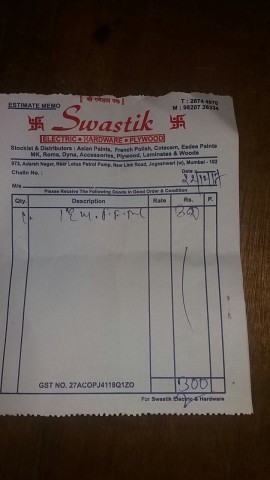 || श्री गणेशाय नमः ||
ESTIMATE MEMO
T : 2674 4970
M : 98207 36334
Swastik
ELECTRIC • HARDWARE • PLYWOOD
Stockist & Distributors : Asian Paints, French Polish, Cotecem, Esdee Paints
MK, Roma, Dyna, Accessories, Plywood, Laminates & Woods
973, Adarsh Nagar, Near Lotus Patrol Pump, New Link Road, Jogeshwari (w), Mumbai - 102
Challn No. :
Date
M/s
Please Receive The Following Goods in Good Order & Condition
Qty. Description Rate Rs. P.
300
300
GST NO. 27ACOPJ4118Q1ZO
For Swastik Electric & Hardware